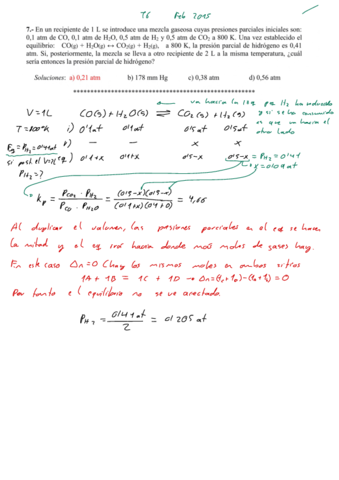 T6 Feb 2015
7.- En un recipiente de 1 L se introduce una mezcla gaseosa cuyas presiones parciales iniciales son:
0,1 atm de CO, 0,1 atm de H₂O, 0,5 atm de H₂ y 0,5 atm de CO₂ a 800 K. Una vez establecido el
equilibrio: CO(g) + H₂O(g) ↔ CO₂(g) + H₂(g), a 800 K, la presión parcial de hidrógeno es 0,41
atm. Si, posteriormente, la mezcla se lleva a otro recipiente de 2 L a la misma temperatura, ¿cuál
sería entonces la presión parcial de hidrógeno?
Soluciones: a) 0,21 atm b) 178 mm Hg c) 0,38 atm d) 0,56 atm
va hacia la izq que H₂ ha reducido
V=1L CO(g)+H₂O(g) ⇌ CO₂(g)+H₂(g) y si se ha consumido
es que va hacia el
otro lado
i) 0'1at 0'1at 0'5at 0'5at
x x
0'1+x 0'1+x 0'5-x 0'5-x = P_H₂ = 0'41
x = 0'09 at
P_H₂=?
Kp = P_CO₂ · P_H₂ / P_CO · P_H₂O
Al duplicar el volumen, las presiones parciales en el eq se hacen
la mitad y el eq irá hacia donde más moles de gases hay.
En este caso Δn=0 (hay los mismos moles en ambos sitios
1A + 1B = 1C + 1D → Δn=
Por tanto el equilibrio no se ve afectado.
P_H₂ = 0'41at / 2 = 0'205 at